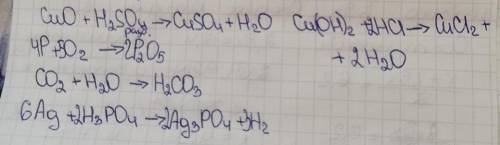 CuO + H₂SO₄ → CuSO₄ + H₂O Cu(OH)₂ + 2HCl → CuCl₂ +
разб.
+ 2H₂O
4P + 5O₂ → 2P₂O₅
CO₂ + H₂O → H₂CO₃
6Ag + 2H₃PO₄ → 2Ag₃PO₄ + 3H₂